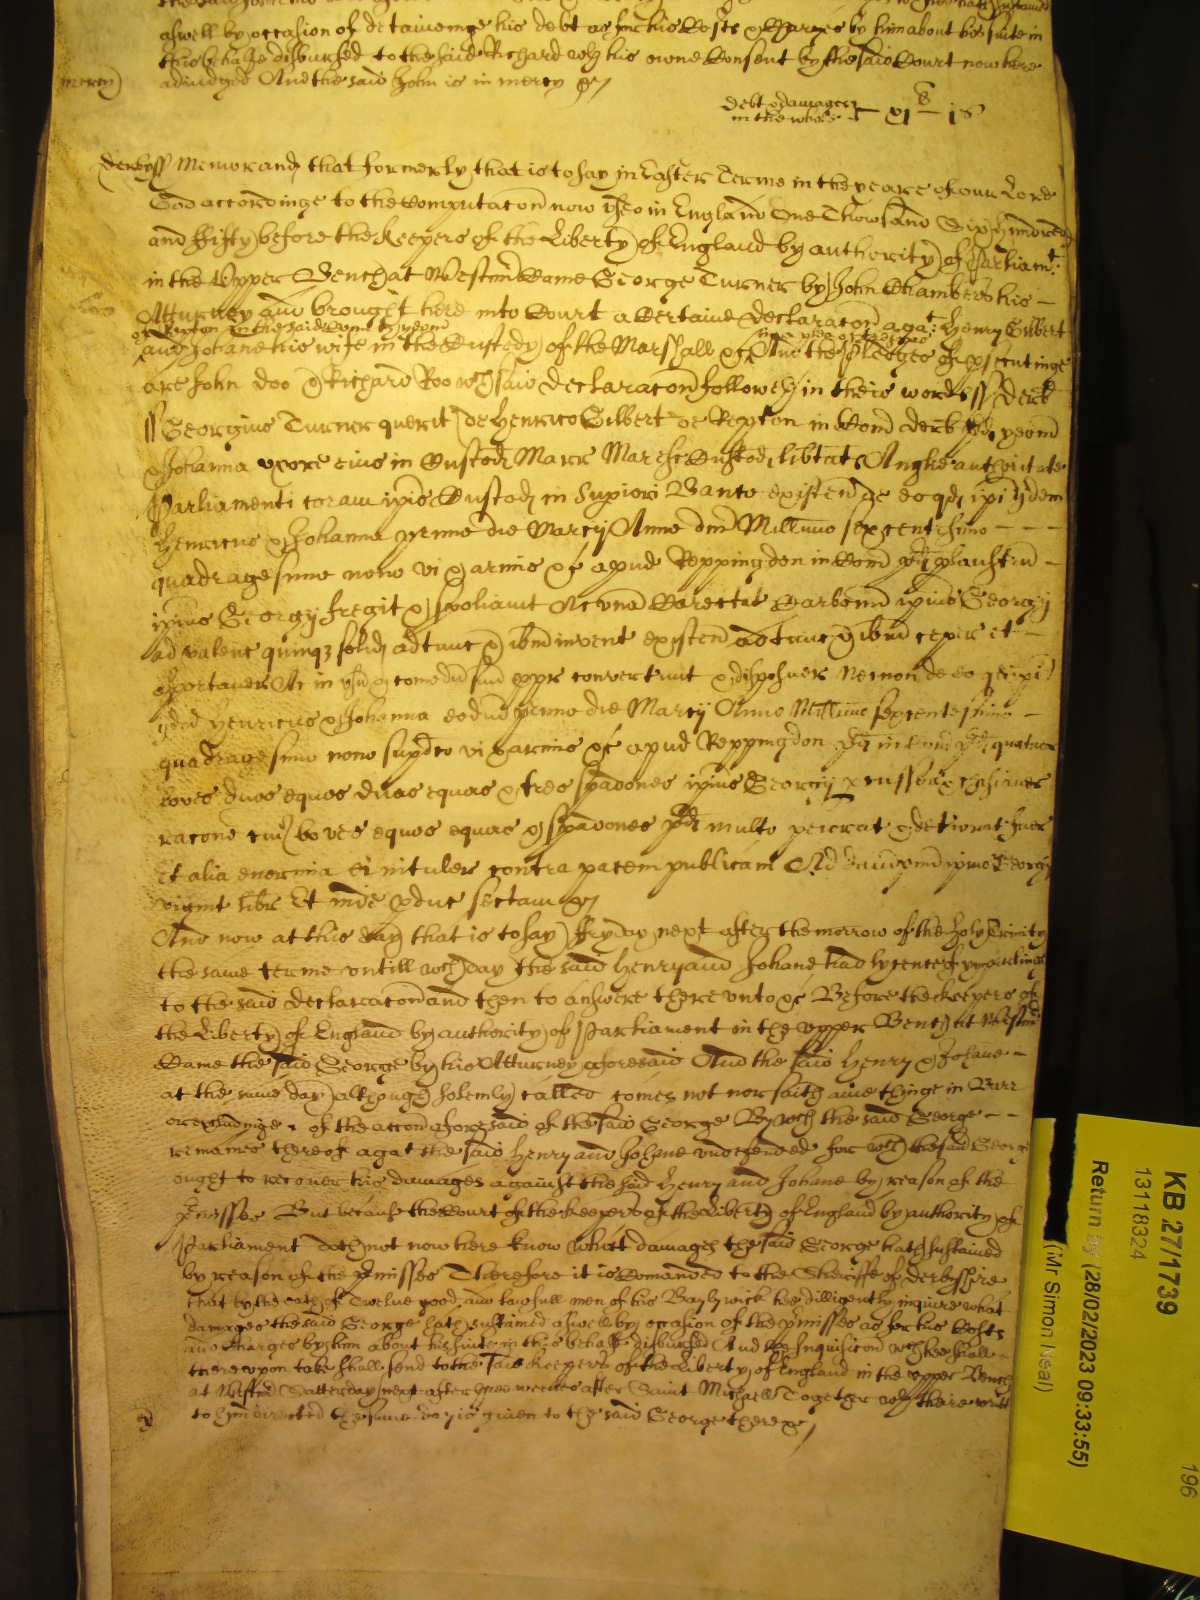 aswell by occasion of deteineinge his debt as for his Costs & Charges by him about his suite in
this behalfe disbursed to the said Richard wth his owne Consent by the said Court now here
mercy adiudged And the said John is in mercy &c
debt & damages
in the whole
Derbyss Memorand that formerly that is to say in Easter Terme in the yeare of our Lord
God accordinge to the Computacon now used in England One Thowsand Six hundred
and ffifty before the Keepers of the Liberty of England by authority of Parliamt:
in the Upper Bench at Westmr Came George Turner by John Chambers his
Atturney and brought here into Court a Certaine declaracon agat: Henry Gilbert
of Repton in the said County yeom
in a plea of trespas
and Johane his wife in the Custody of the Marshall &c And the Pledges of psecutinge
are John Doo & Richard Roo wch said declaracon followeth in theis words ss Derb
ss Georgius Turner querit de Henrico Gilbert de Repton in Com Derb pd yeom
& Johanna uxore eius in Custod Marr Maresc Custod libtat Anglie authoritate
Parliamenti coram ipis Custod in Supiori Banco existen de eo qd ipi ijdem
Henricus & Johanna primo die Marcij Anno dni Millimo sexcentesimo
quadragesimo nono vi & armis &c apud Reppingdon in Com pd plaustru
ipius Georgij fregit & spoliavit Ac una Carectat Carbonu ipius Georgij
ad valenc quinqz solid adtunc & ibm invent existen adtunc & ibm ceper et
asportaver Ac in usu & comodu suu ppr convertunt & disposuer Necnon de eo qd ipi
ijdem Henricus & Johanna eodem primo die Marcij Anno Millimo sexcentesimo
quadragesimo nono supdco vi & armis &c apud Reppingdon pd in Com pd quatuor
boves duos equos duas equas & tres spadones ipius Georgij &
racone cuius boves equos equas & spadones pd multo peiorat & deteriorat fuer
Et alia enormia ei intuler contra pacem publicam Ad dampnum ipius Georgij
vigint libr Et inde pduc sectam &c
And now at this day that is to say ffryday next after the morrow of the holy Trinity
the same terme untill wch day the said Henry and Johane had lycence of ymparlinge
to the said declaracon and then to answere there unto &c Before the Keepers of
the Liberty of England by authority of Parliament in the Upper Bench at Westmr
Came the said George by his Atturney aforesaid And the said Henry & Johane
at the same day although solemly called comes not nor saith anie thinge in Barr
or precludinge of the accon aforesaid of the said George By wch the said George
remaines thereof agat the said Henry and Johane undefended for wch the said George
ought to recover his damages against the said Henry and Johane by reason of the
pmisses But because the Court of the Keepers of the Liberty of England by authority of
Parliament doth not now here know what damages the said George hath sustained
by reason of the pmisses Therefore it is Comanded to the Sheriffe of Derbyshire
that by the oath of Twelve good and lawfull men of his Baylywick hee dilligently inquire what
damages the said George hath sustained aswell by occasion of the pmisses as for his Costs
and Charges by him about his suite in this behalfe disbursed And the Inquisicon wch hee shall
thereupon take shall send to the said Keepers of the Liberty of England in the Upper Bench
at Westmr Satterday next after three weekes after Saint Michaell Together with theire writt
to him directed the same day is given to the said George there &c
KB 27/1739
13118324
Return by (28/02/2023 09:33:55)
(Mr Simon Neal)
196